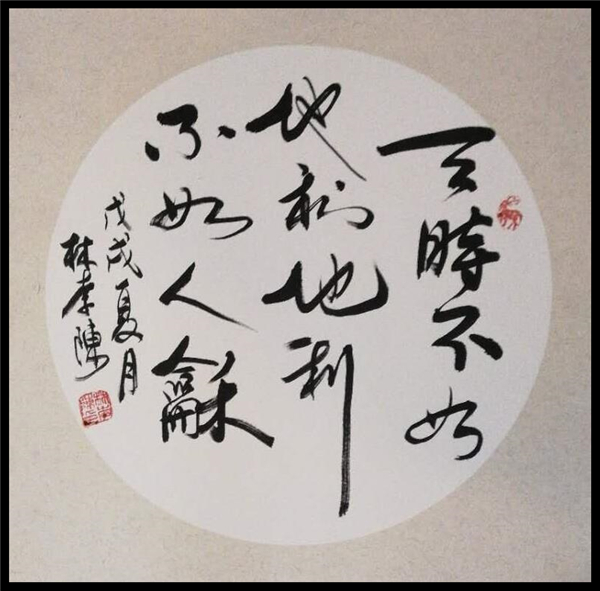 天時不如
地利地利
不如人龢
戊戌夏月
林李陳